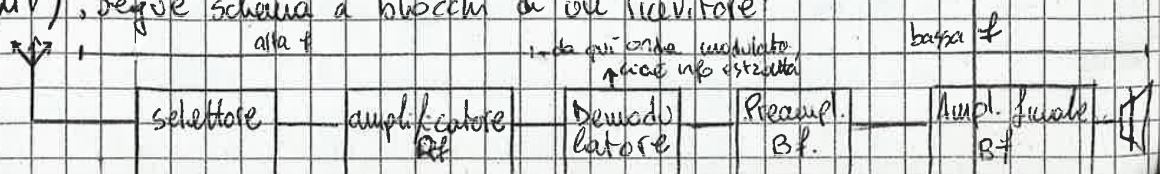 μV), segue schema a blocchi di un ricevitore
alta f
da qui onda modulata
bassa f
↑ cioè info estratta
selettore
amplificatore
Rf
Demodu
latore
Preampl.
Bf.
Ampl. finale
Bf